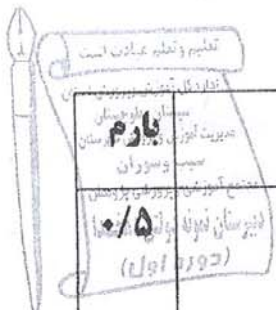 تعلیم و تعلم عبادت است
اداره کل آموزش و پرورش استان
سیستان و بلوچستان
مدیریت آموزش و پرورش شهرستان
سیب و سوران
مجتمع آموزشی و پرورشی پژوهش
دبیرستان نمونه دولتی
(دوره اول)
بارم
۰/۵